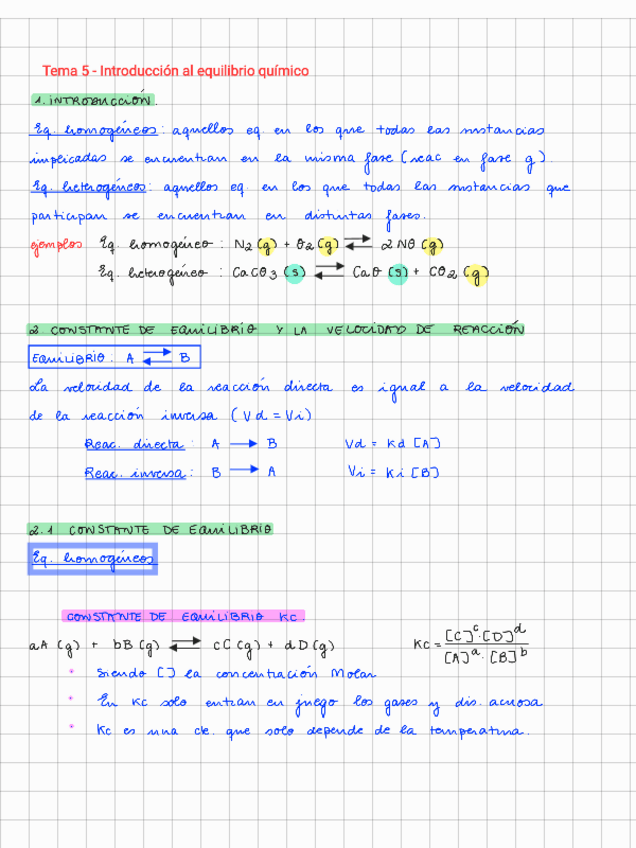 Tema 5 - Introducción al equilibrio químico
1. INTRODUCCIÓN.
Eq. homogéneos: aquellos eq. en los que todas las sustancias
implicadas se encuentran en la misma fase (reac en fase g).
Eq. heterogéneos: aquellos eq. en los que todas las sustancias que
participan se encuentran en distintas fases.
ejemplos Eq. homogéneo: N2(g) + O2(g) ⇄ 2NO(g)
Eq. heterogéneo: CaCO3(s) ⇄ CaO(s) + CO2(g)
2. CONSTANTE DE EQUILIBRIO Y LA VELOCIDAD DE REACCIÓN
EQUILIBRIO: A ⇄ B
La velocidad de la reacción directa es igual a la velocidad
de la reacción inversa (Vd = Vi)
Reac. directa: A → B Vd = Kd [A]
Reac. inversa: B → A Vi = Ki [B]
2.1 CONSTANTE DE EQUILIBRIO
Eq. homogéneos
CONSTANTE DE EQUILIBRIO KC.
aA(g) + bB(g) ⇄ cC(g) + dD(g) Kc = [C]^c·[D]^d / [A]^a·[B]^b
• Siendo [] la concentración Molar.
• En Kc solo entran en juego los gases y dis. acuosa
• Kc es una cte. que solo depende de la temperatura.